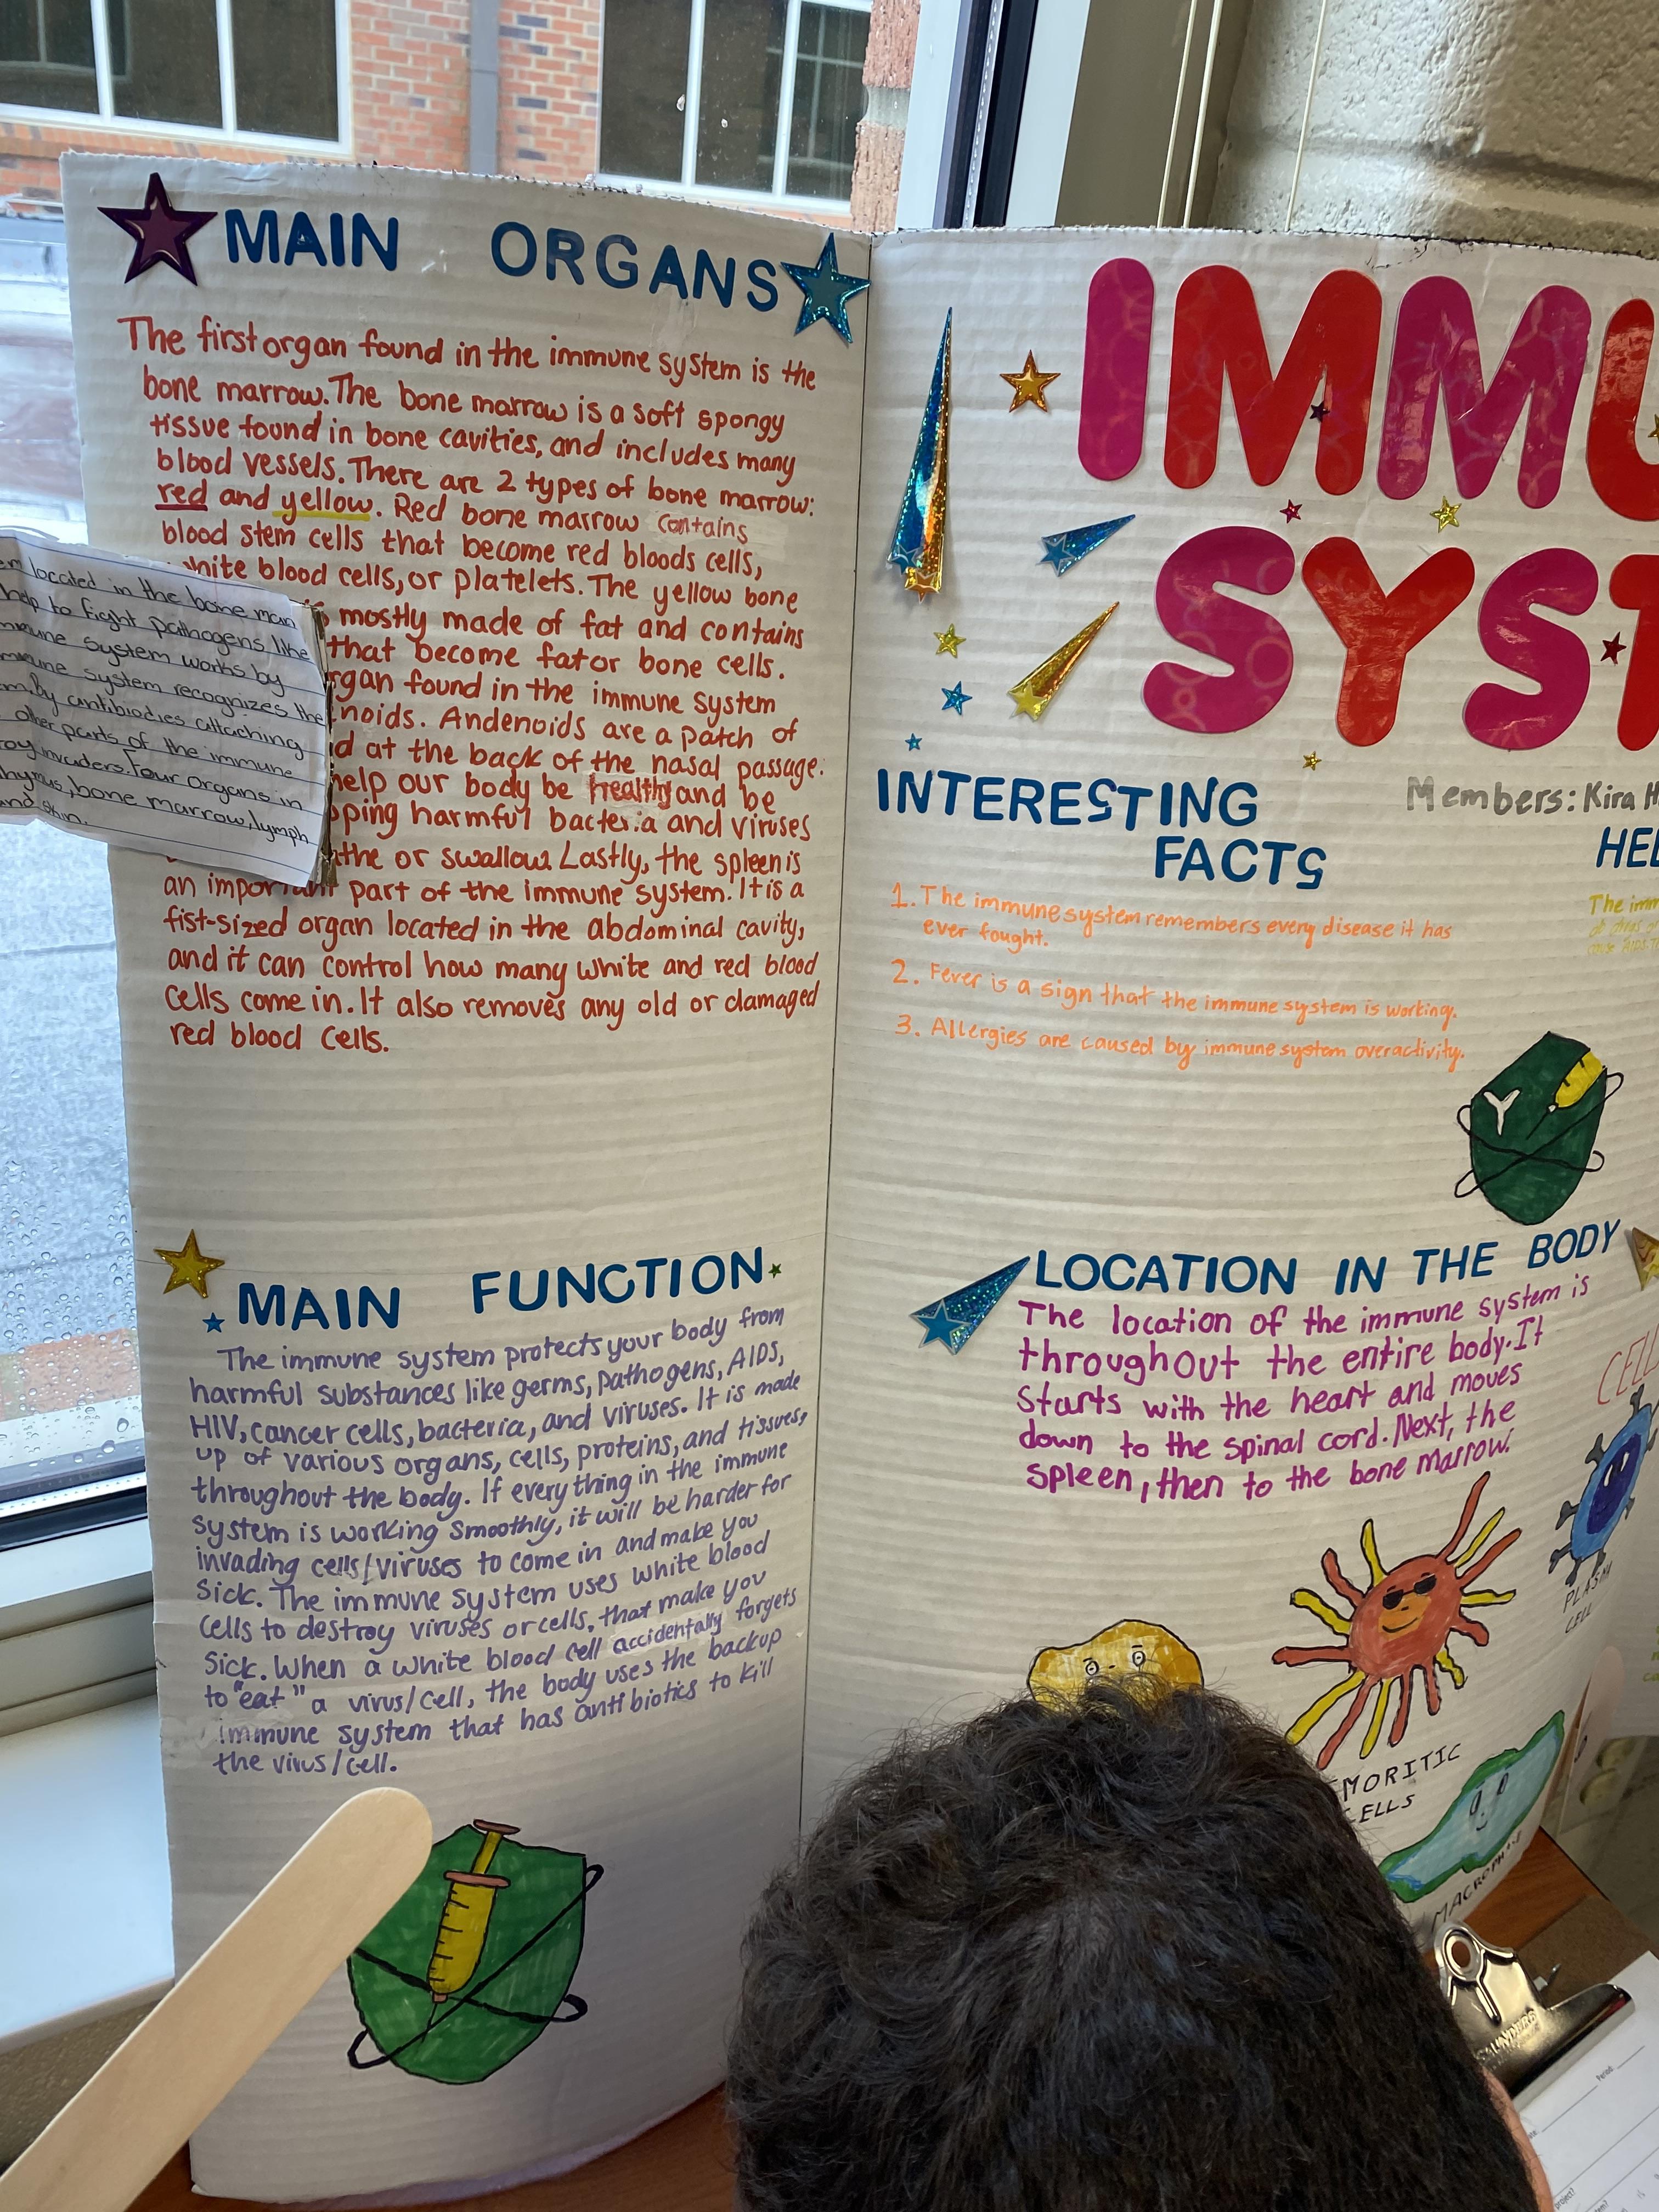 MAIN ORGANS
The first organ found in the immune system is the
bone marrow. The bone marrow is a soft spongy
tissue found in bone cavities, and includes many
blood vessels. There are 2 types of bone marrow:
red and yellow. Red bone marrow contains
blood stem cells that become red bloods cells,
white blood cells, or platelets. The yellow bone
mostly made of fat and contains
that become fat or bone cells.
found in the immune system
Andenoids are a patch of
at the back of the nasal passage.
help our body be healthy and be
harmful bacteria and viruses
or swallow. Lastly, the spleen is
an important part of the immune system. It is a
fist-sized organ located in the abdominal cavity,
and it can control how many white and red blood
cells come in. It also removes any old or damaged
red blood cells.
located in the bone marr
help to fight pathogens like
system works by
system recognizes the
by antibiodies attaching
other parts of the immune
invaders. Four organs in
bone marrow, lymph
skin.
MAIN FUNCTION
The immune system protects your body from
harmful substances like germs, pathogens, AIDS,
HIV, cancer cells, bacteria, and viruses. It is made
up of various organs, cells, proteins, and tissues,
throughout the body. If everything in the immune
system is working smoothly, it will be harder for
invading cells/viruses to come in and make you
sick. The immune system uses white blood
cells to destroy viruses or cells, that make you
sick. When a white blood cell accidentally forgets
to "eat" a virus/cell, the body uses the backup
immune system that has antibiotics to kill
the virus/cell.
IMMU
SYST
Members: Kira H
INTERESTING
FACTS
1. The immune system remembers every disease it has
ever fought.
2. Fever is a sign that the immune system is working.
3. Allergies are caused by immune system overactivity.
HEL
The imm
LOCATION IN THE BODY
The location of the immune system is
throughout the entire body. It
starts with the heart and moves
down to the spinal cord. Next, the
spleen, then to the bone marrow.
CELL
PLASM
CELL
MORITIC
CELLS
Period:
project?